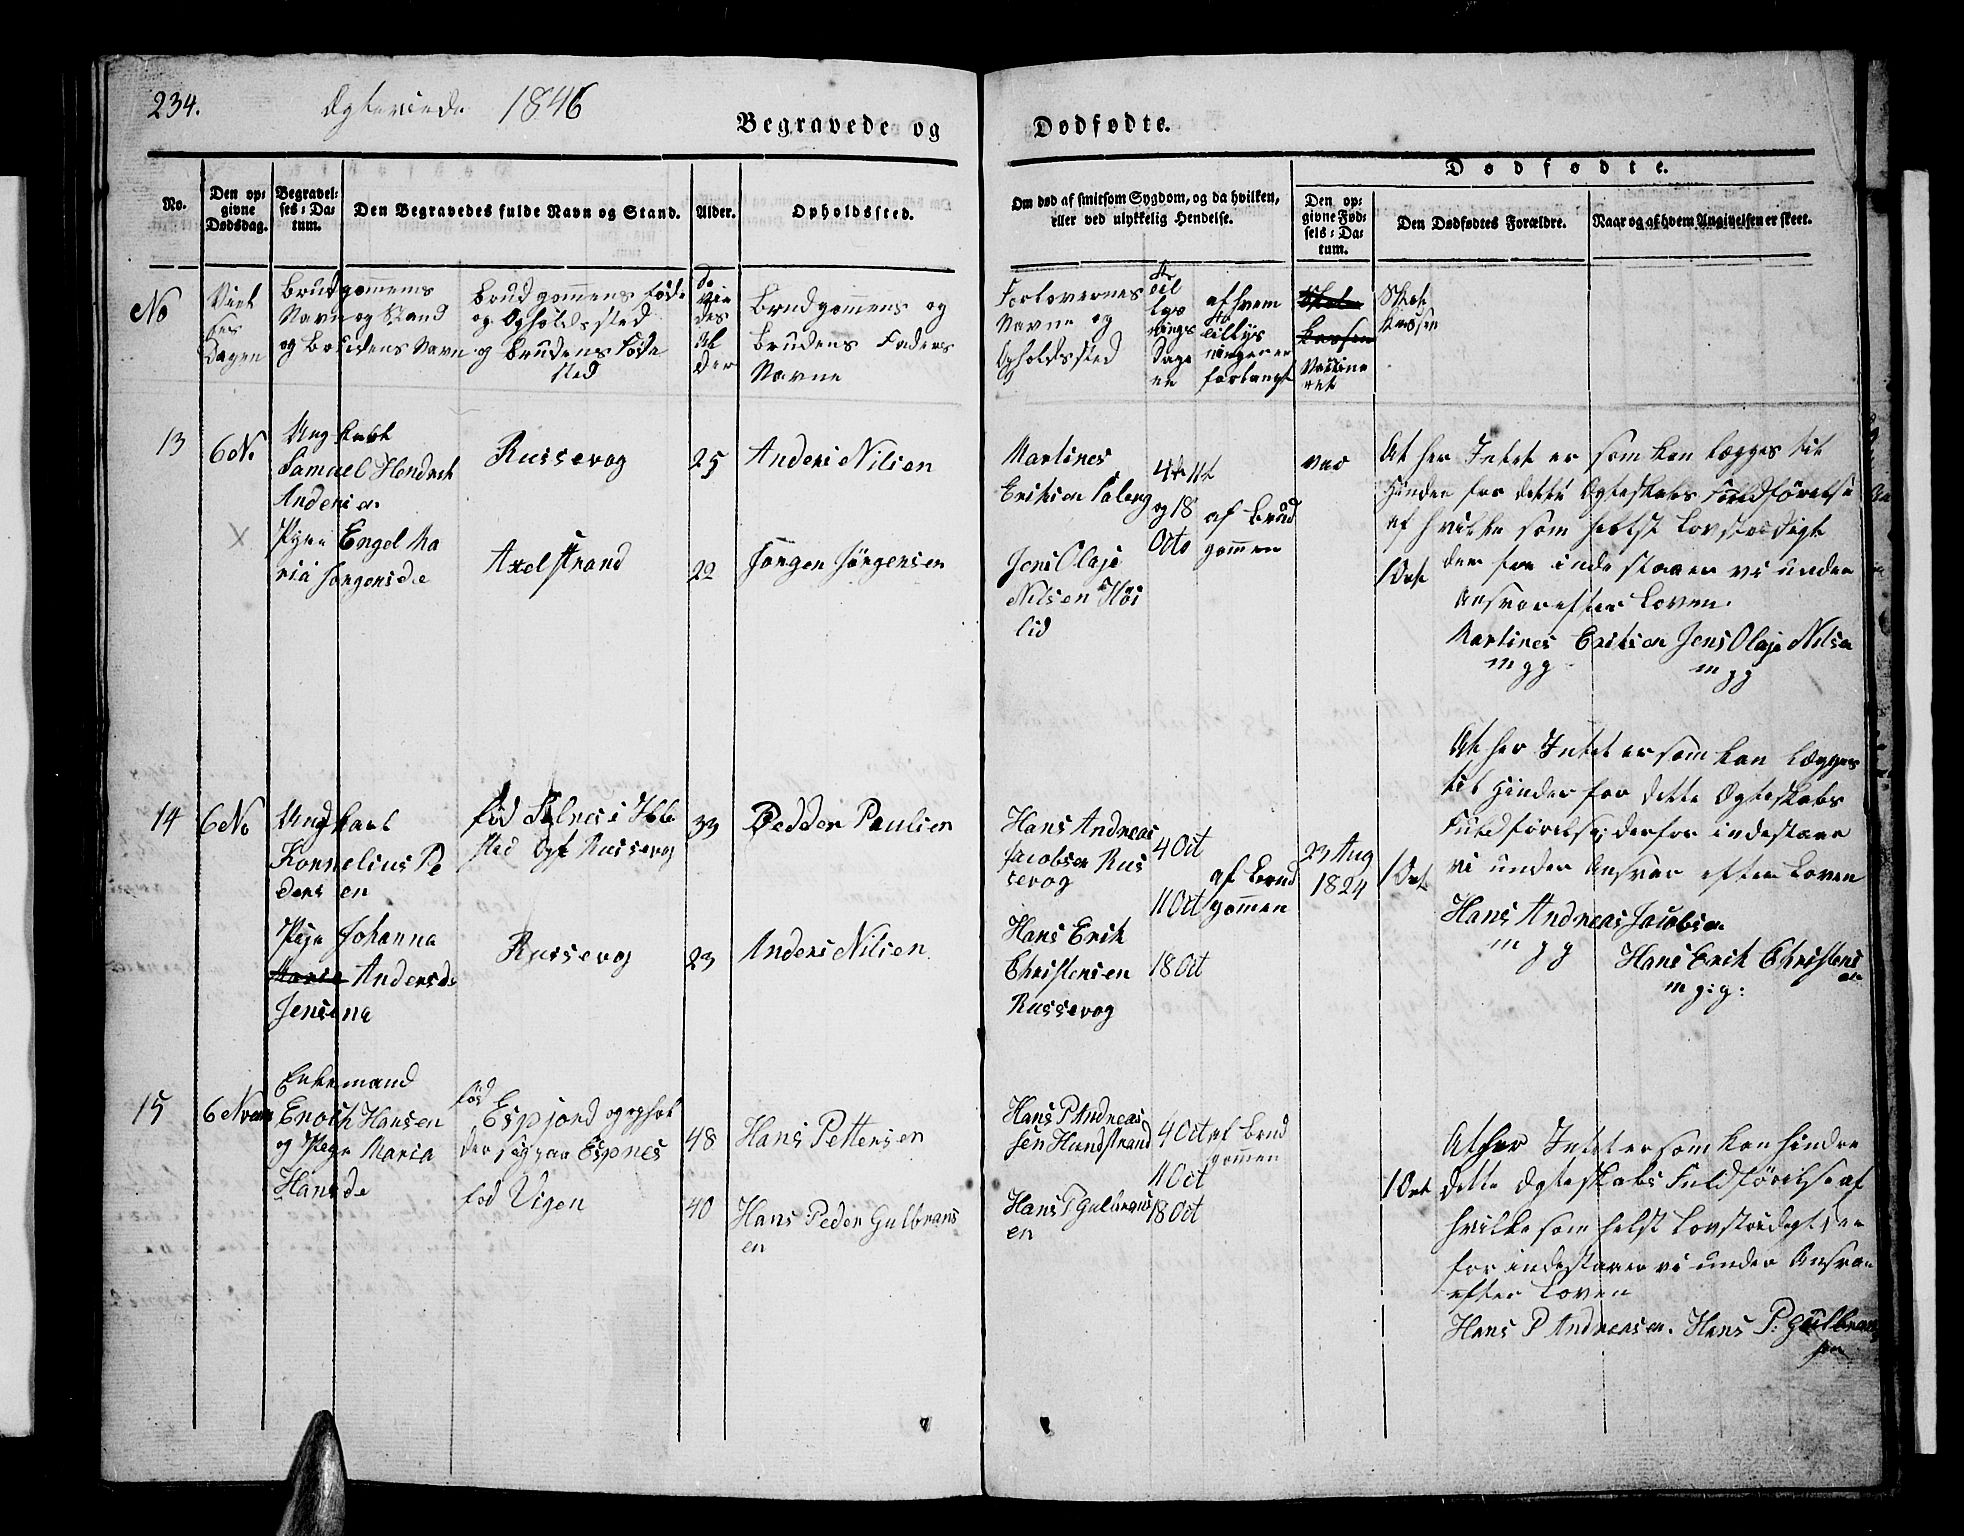 234.
Ægteviede 1846
Begravede og
Dødfødte.
No.
Den op-
givne
Dødsdag.
Begravel-
ses-Da-
tum.
Den Begravedes fulde Navn og Stand.
Alder.
Opholdssted.
Om død af smitsom Sygdom, og da hvilken,
eller ved ulykkelig Hendelse.
Dødfødte.
Den op-
givne Fød-
sels-Da-
tum.
Den Dødfødtes Forældre.
Naar og af hvem Angivelsen er skeet.
No
Viel
ses
Dagen
Brudgommens
Navn og Stand
og Brudens Navn
Brudgommens Føde
og Opholdssted
og Brudens Føde
sted
De
Vie
des
Al
der
Brudgommens og
Brudens Faders
Navne
Forlovernes
Navne og
Opholdssted
Til
lys
nings
Dage
ne
af hvem
Tillys
ningen er
forlangt
Vaccine
ret
13
6 No
Ungkarl
Samuel Hendrek
Andersen
Pigen Engel Ma
ria Jørgensde
Russevog
Axelstrand
25
22
Anders Nilsen
Jørgen Jørgensen
Martines
Eritsen
Jens Olaje
Nilsen Høi
lid
4de 11t
og 18
Octo
af Brud
gommen
1 Ort
At her Intet er som kan lægges til
Hinder for dette Ægteskabs Fuldførelse
af hvilke som helst Lovstridigt
derfor indestaaer vi under
Ansvar efter Loven.
Martines Eritsen Jens Olaje Nilsen
m g g
m g g
14
6 No
Ungkarl
Kornelius Pe
dersen
Pige Johanna
Andersde
Jensina
fød i Ibbe
sted Russevog
Russevog
33
23
Pedder Paulsen
Anders Nilsen
Hans Andreas
Jacobsen Rus
sevog
Hans Erik
Christensen
Russevog
4 Oct
11 Oct
18 Oct
af Brud
gommen
23 Aug
1824
1 Ort
At her Intet er som kan lægges
til Hinder for dette Ægteskabs
Fuldførelse, derfor indestaaer
vi under Ansvar efter Loven
Hans Andreas Jacobsen
m g g
Hans Erik Christens
en
m g: g:
15
6 Novem
Enkemand
Enoch Hansen
og Pige Maria
Hansde
fød
Espjord og ophol
der sig paa Espnes
fød Vigen
48
40
Hans Pettersen
Hans Peder Gulbrans
en
Hans P Andreas
sen Hundstrand
Hans P Gulbrans
en
4 Oct
11 Oct
18 Oct
af Brud
gommen
1 Ort
At her Intet er som kan hindre
dette Ægteskabs Fuldførelse af
hvilke som helst Lovstridigt, der
for indestaaer vi under Ansvar
efter Loven
Hans P Andreasen. Hans P. Gulbran
sen